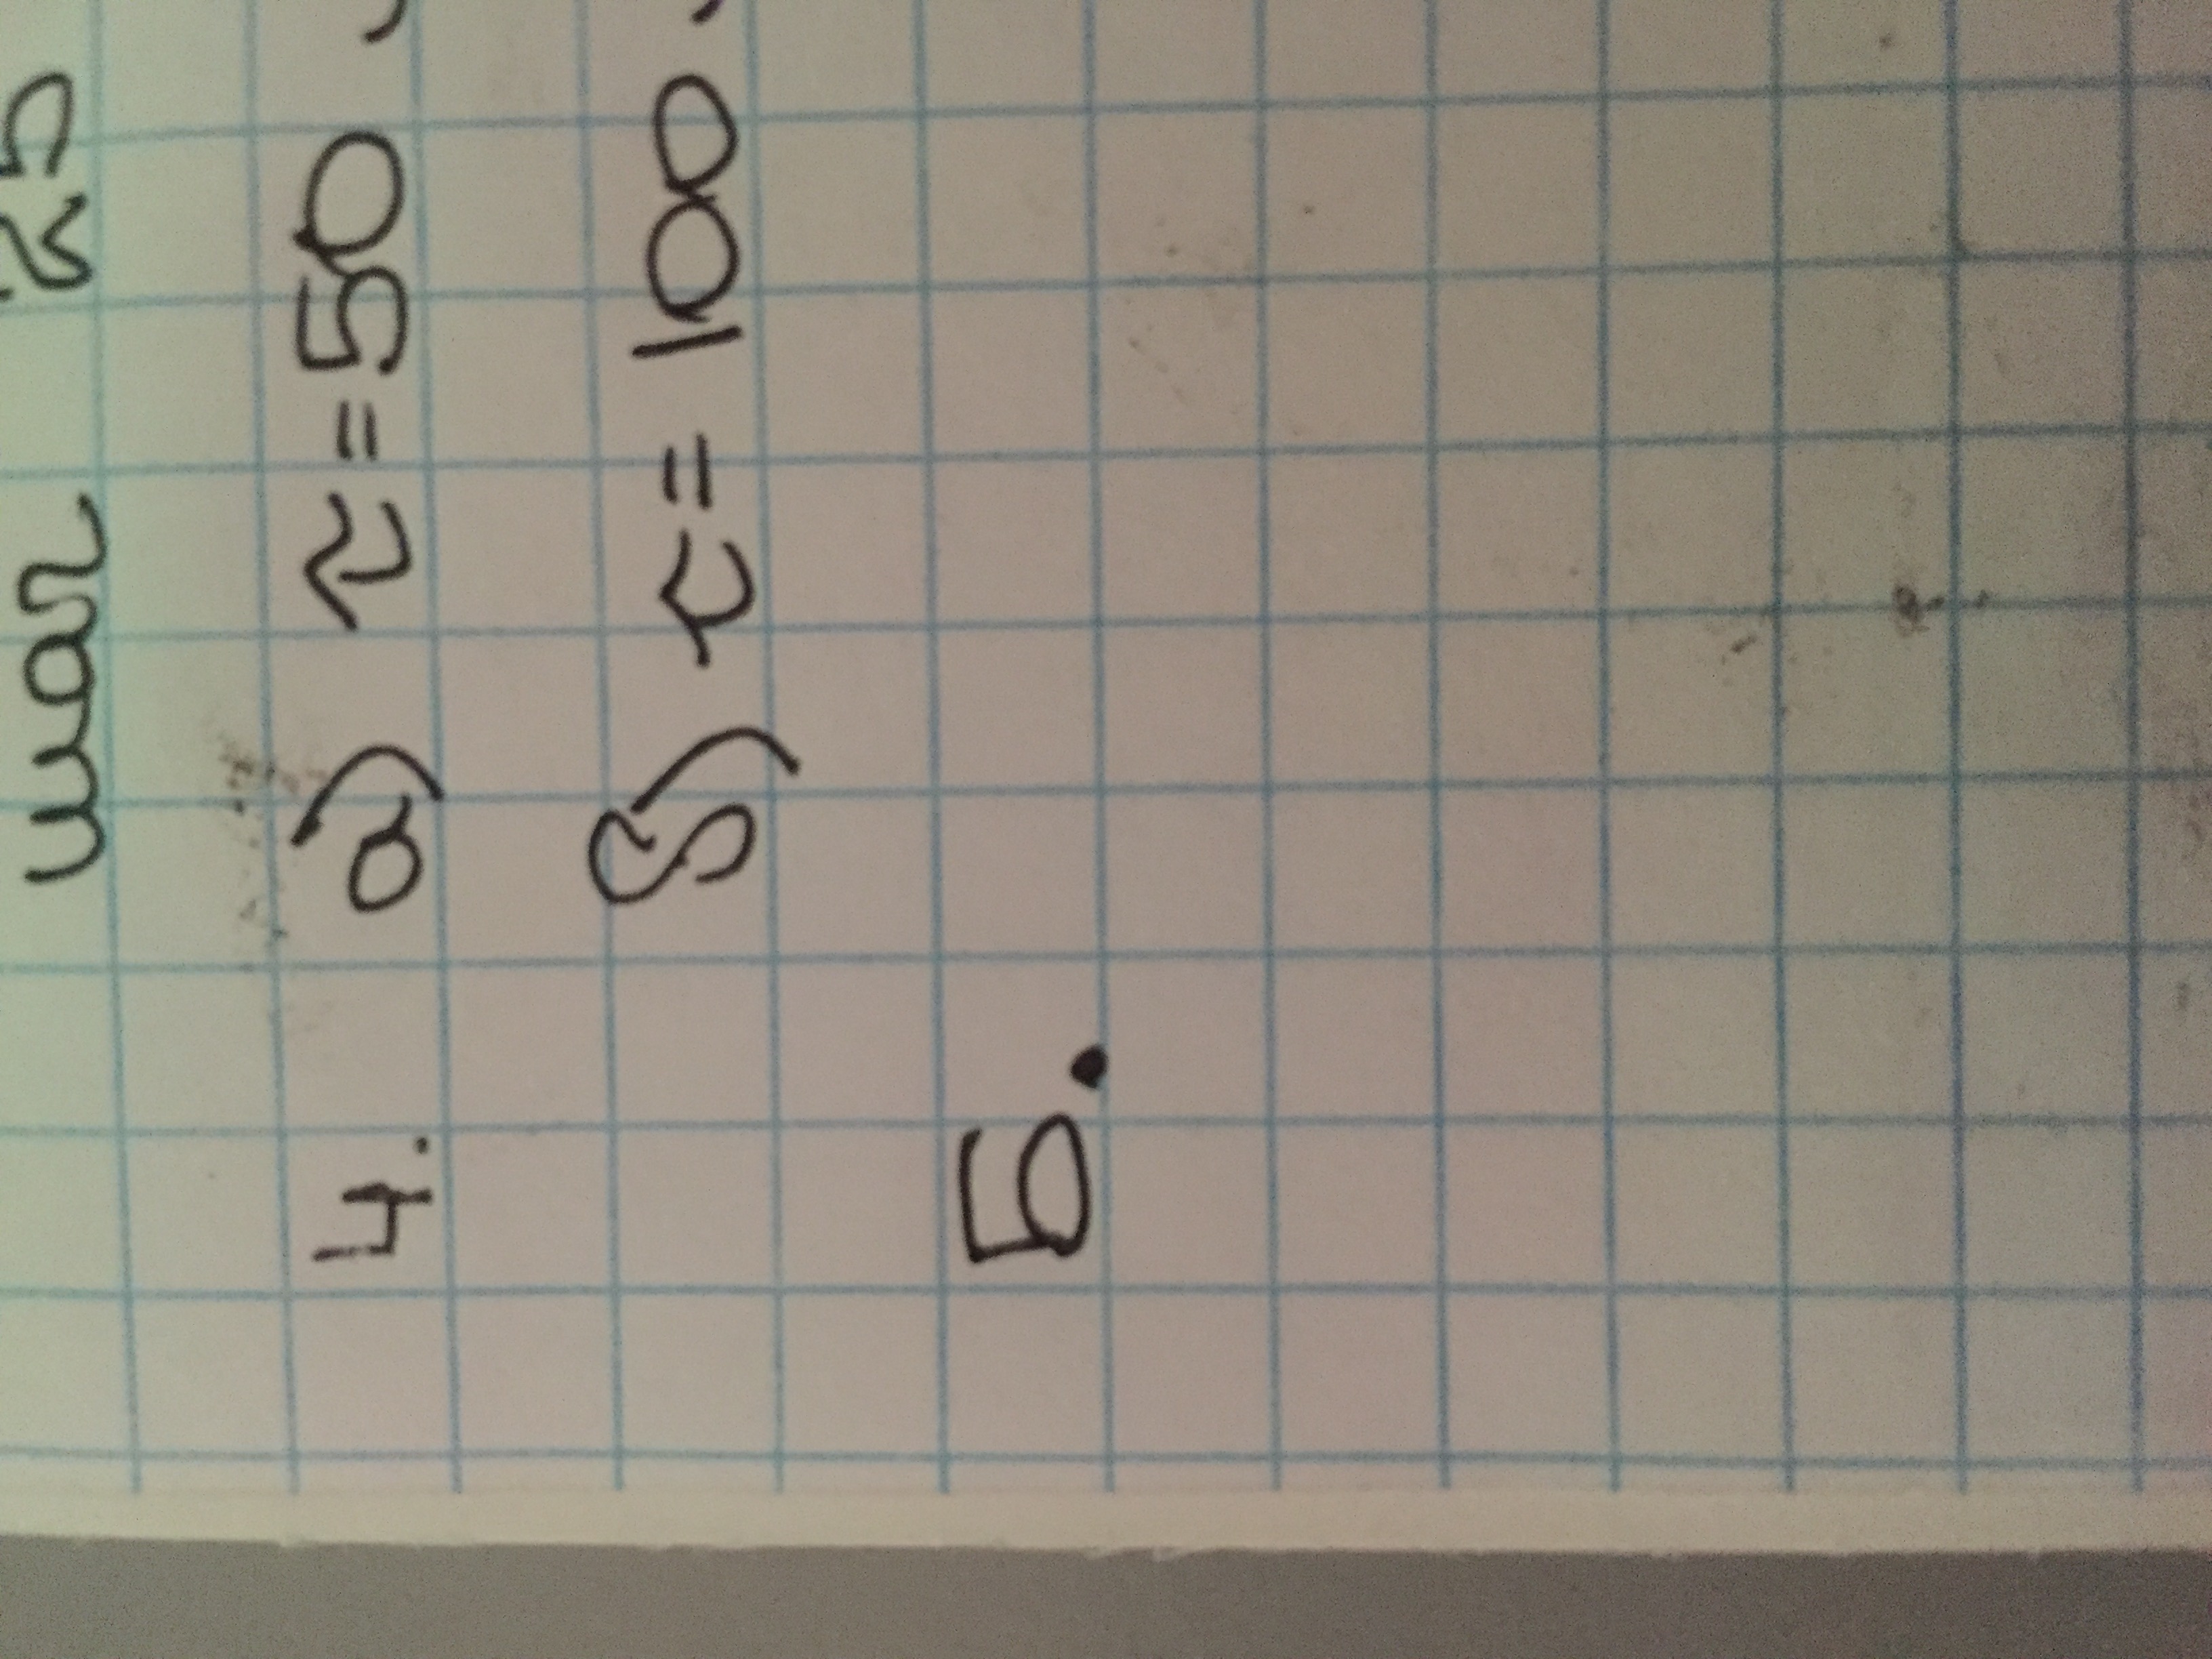 шаг 25
4. а) τ = 50
б) τ = 100
5.